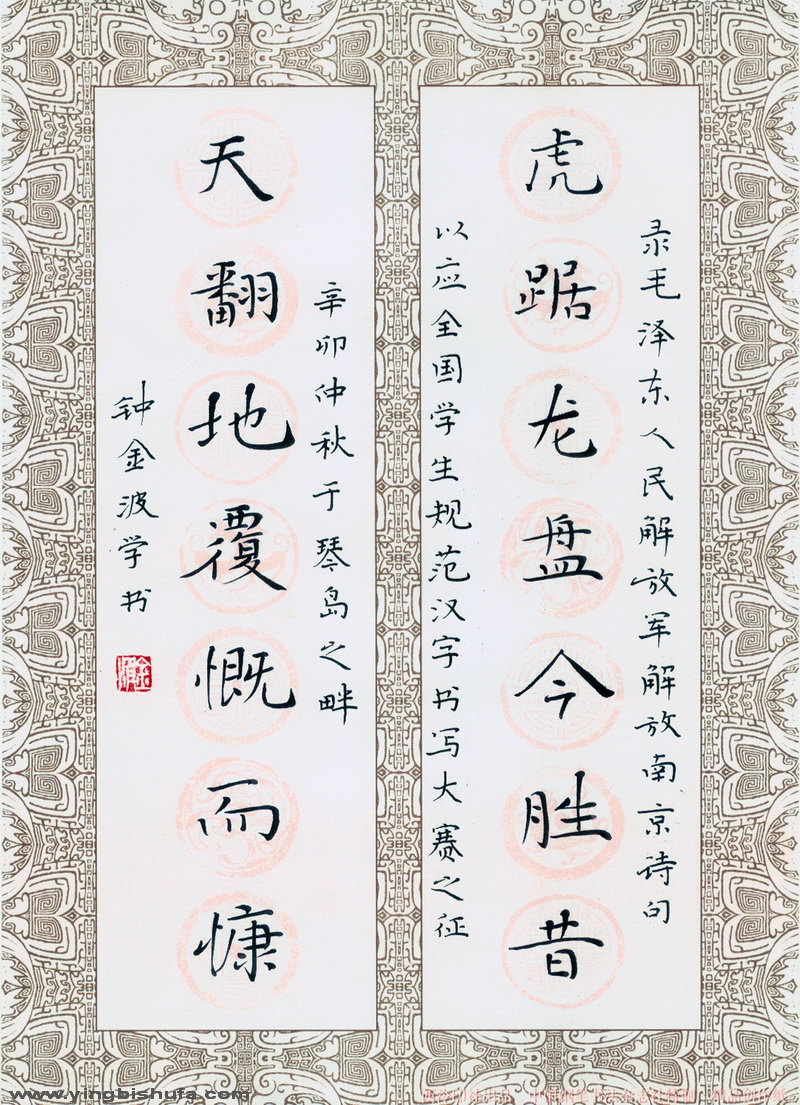 录毛泽东人民解放军解放南京诗句
虎踞龙盘今胜昔
以应全国学生规范汉字书写大赛之征
辛卯仲秋于琴岛之畔
天翻地覆慨而慷
钟金波学书
www.yingbishufa.com